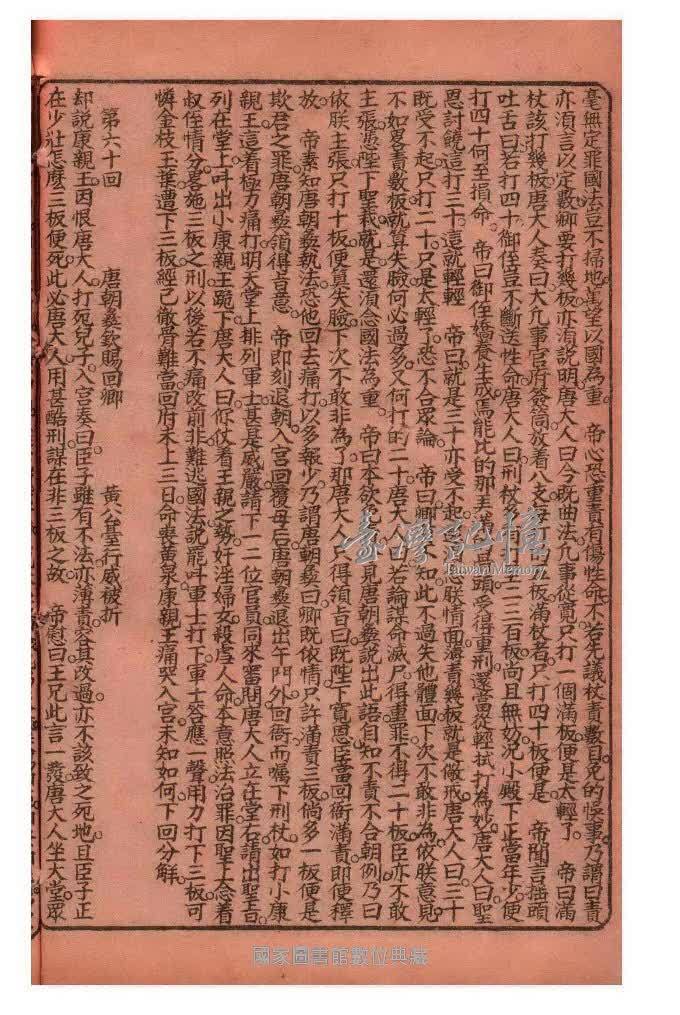 毫無定罪國法豈不掃地萬望以國為重 帝心恐重責有傷性命不若先議杖責數目免的悞事乃謂曰責
亦須言以定數卿要打幾板亦須說明唐大人曰今既曲法凡事從寬只打一個滿板便是太輕了 帝曰滿
杖該打幾板唐大人奏曰大凡事官府簽筒放着八支 板滿杖者只打四十板便是 帝聞言搖頭
吐舌曰若打四十御侄豈不斷送性命唐大人曰刑杖多有打一二三百板尚且無妨况小殿下正當年少便
打四十何至損命 帝曰御侄嬌養生成焉能比的那王 頭受得重刑還當從輕拭打為妙唐大人曰聖
恩討饒這打三十這就輕輕 帝曰就是三十亦受不起 念朕情面薄責幾板就是儆戒唐大人曰三十
既受不起只打二十只是太輕了恐不合眾論 帝曰卿 不知此不過失他體面下次不敢非為依朕意見
不如畧責數板就算失臉何必過多又何打的二十唐大人 若論謀命滅尸得重罪不得二十板臣亦不敢
主張憑陛下聖裁就是還須念國法為重 帝曰本欲 見唐朝彝說出此語自知不責不合朝例乃曰
依朕主張只打十板便算失臉下次不敢非為了那唐大人只得領旨曰既陛下寬恩臣當回衙滿責即便釋
放 帝素知唐朝彝執法恐他回去痛打以多報少乃謂唐朝彝曰卿既依情只許滿責三板倘多一板便是
欺君之罪唐朝彝領得旨意 帝即刻退朝入宮回覆母后唐朝彝退出午門外回衙而囑下刑杖如打小康
親王這着極力痛打明天堂上排列軍士甚是威嚴請下一二位官員同來審問唐大人立在堂右請出聖旨
列在堂上叫出小康親王跪下唐大人曰你仗着王親之勢奸淫婦女殺虐人命本意照法治罪因聖上念着
叔侄情分畧施三板之刑以後若不痛改前非難逃國法說罷叫軍士打下軍士答應一聲用力打下三板可
憐金枝玉葉遭下三板經已徹骨難當回府未上三日命喪黃泉康親王痛哭入宮未知如何下回分解
第六十回 唐朝彝欽賜回鄉 黃公臺行威被折
却説康親王因恨唐大人打死兒子入宮奏曰臣子雖有不法亦薄責容其改過亦不該致之死地且臣子正
在少壯怎麽三板便死此必唐大人用甚酷刑謀在非三板之故 帝慰曰王兄此言一發唐大人坐大堂眾
臺灣記憶
Taiwan Memory
國家圖書館數位典藏